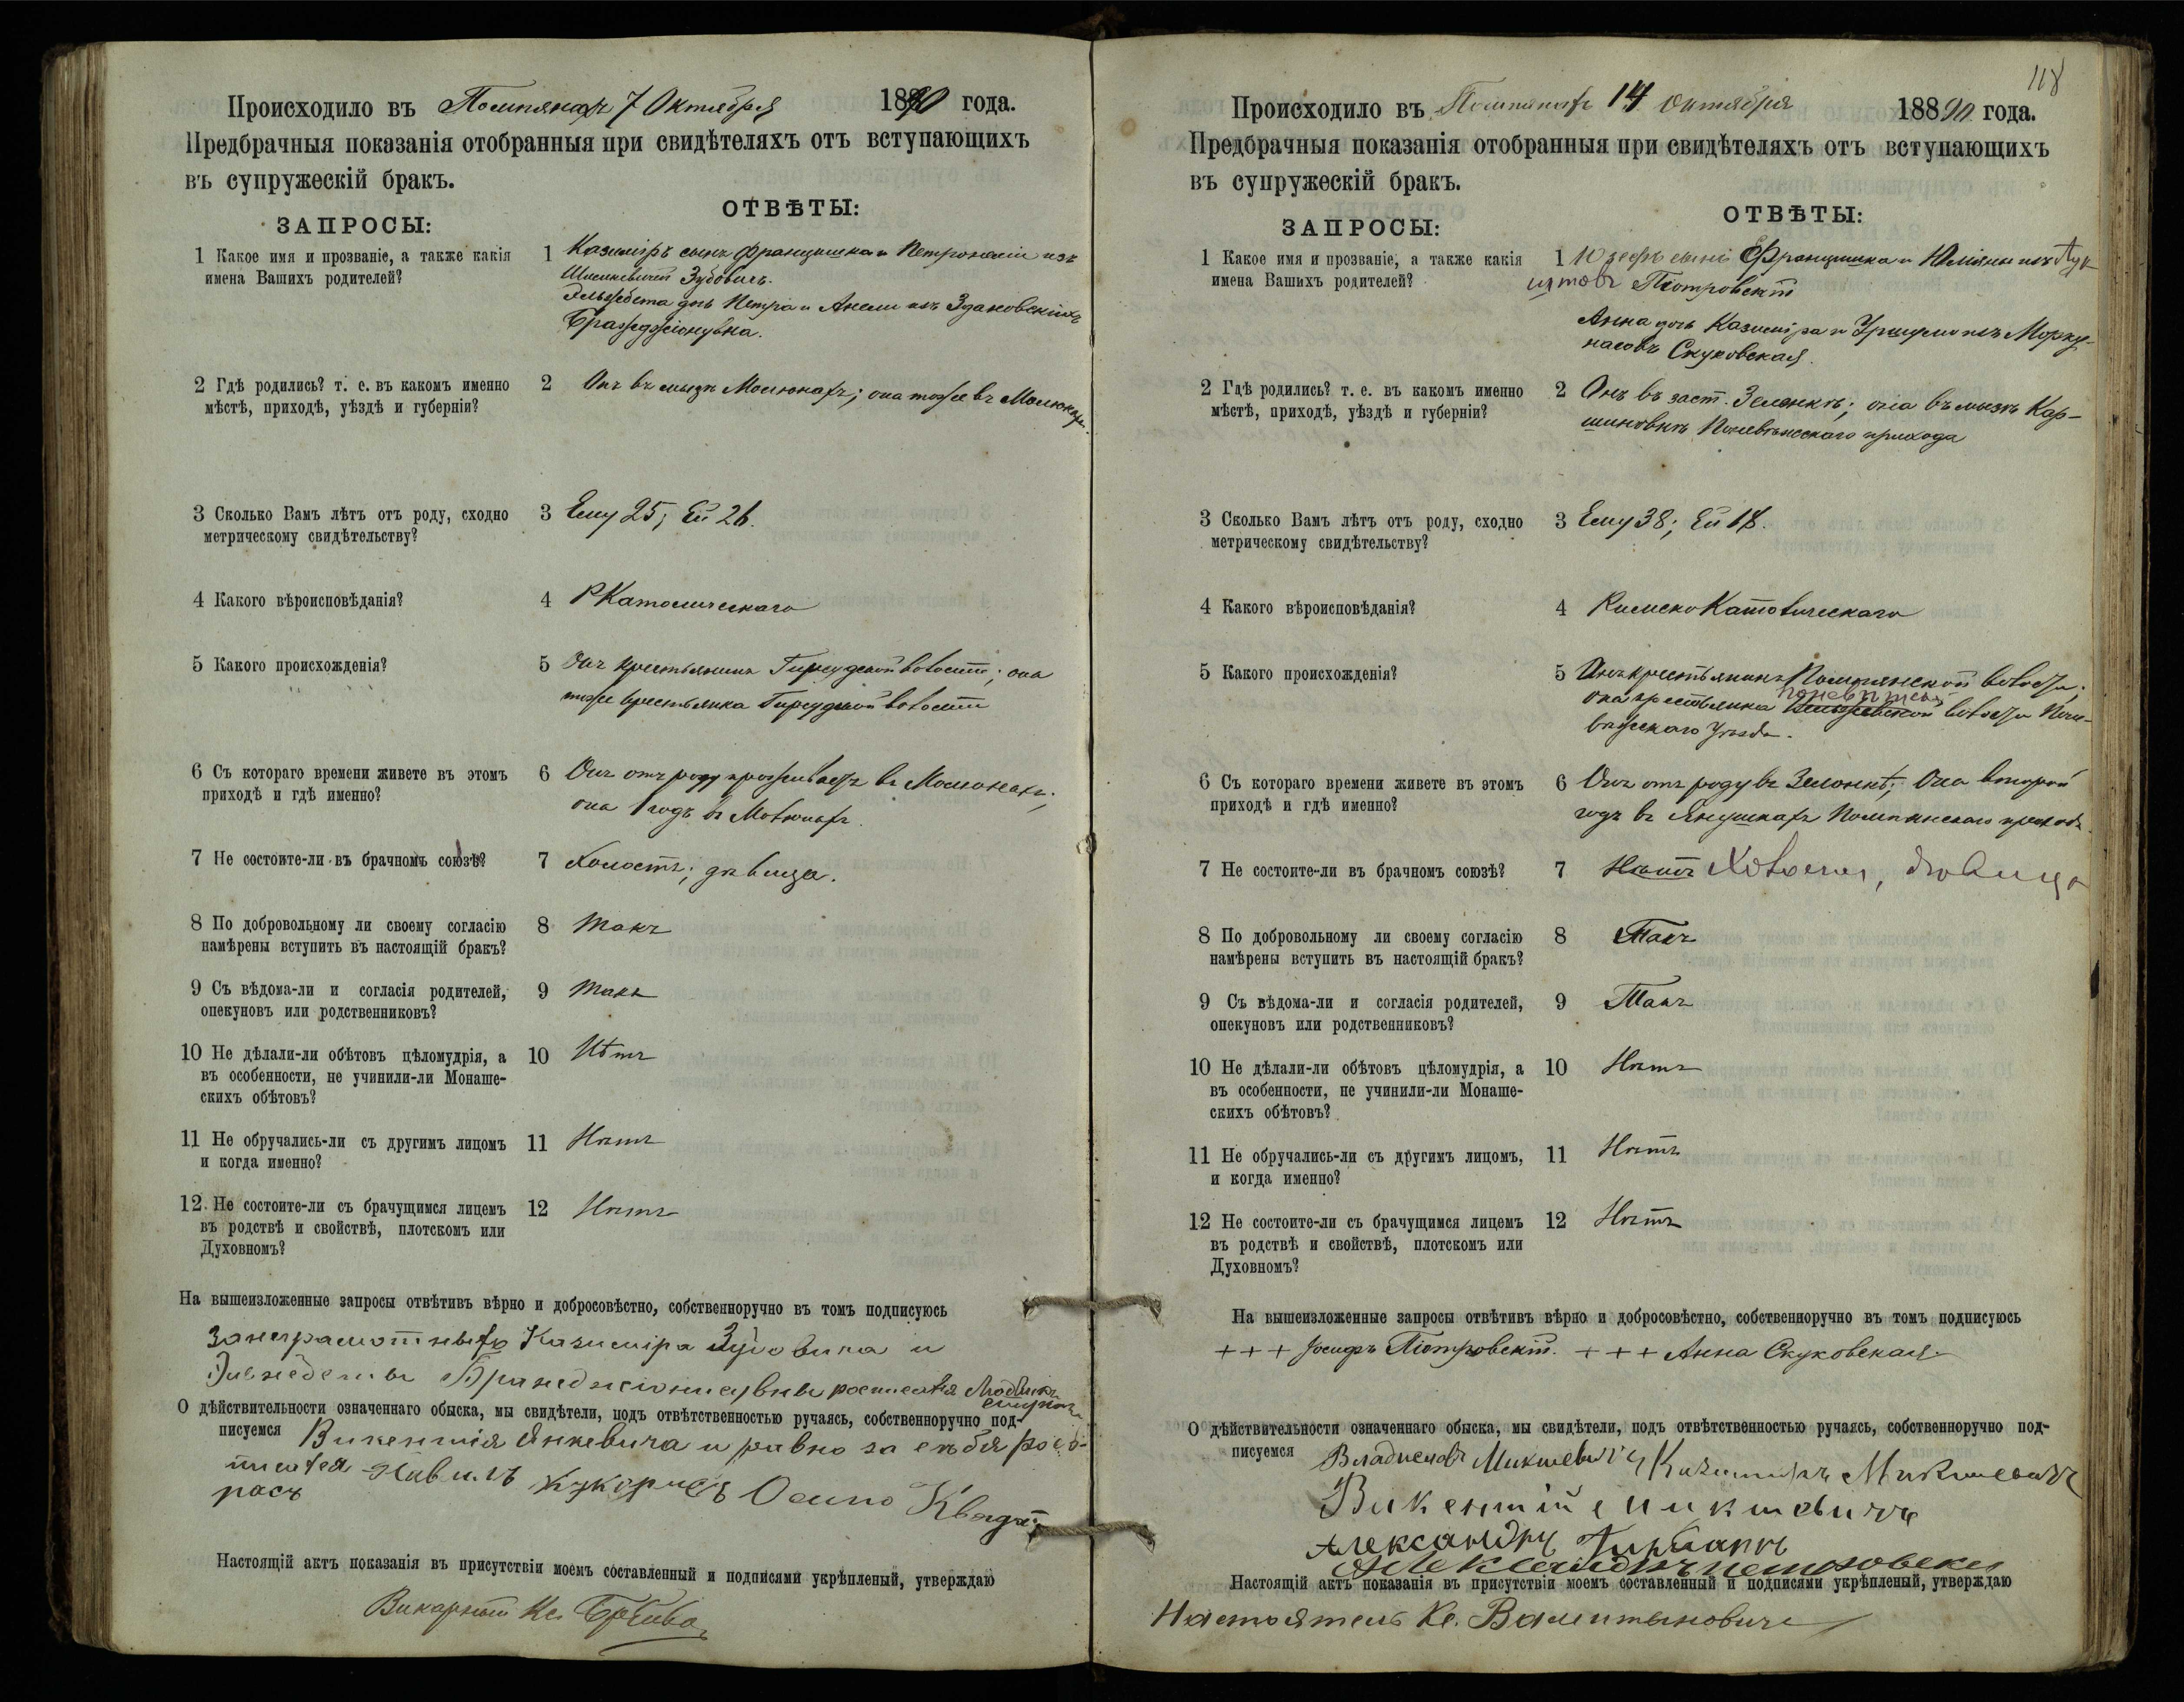 Происходило въ Помпянахъ 7 Октября 1890 года.
Предбрачныя показанія отобранныя при свидѣтеляхъ отъ вступающихъ
въ супружескій бракъ.
ЗАПРОСЫ:
ОТВѢТЫ:
1 Какое имя и прозваніе, а также какія
имена Вашихъ родителей?
1 Казиміръ сынъ Францишка и Петронеліи изъ
Зубовичъ.
Эльжбета дочь Петра и Анели изъ Здановскихъ
2 Гдѣ родились? т. е. въ какомъ именно
мѣстѣ, приходѣ, уѣздѣ и губерніи?
2 Онъ въ мызѣ Молюнахъ; она тоже въ Молюнахъ.
3 Сколько Вамъ лѣтъ отъ роду, сходно
метрическому свидѣтельству?
3 Ему 25; Ей 26.
4 Какого вѣроисповѣданія?
4 РКатолическаго
5 Какого происхожденія?
5 Онъ крестьянинъ волости; она
тоже крестьянка волости
6 Съ котораго времени живете въ этомъ
приходѣ и гдѣ именно?
6 Онъ отъ роду проживаетъ въ Молюнахъ;
она 1 годъ въ Молюнахъ.
7 Не состоите-ли въ брачномъ союзѣ?
7 Холостъ; дѣвица.
8 По добровольному ли своему согласію
намѣрены вступить въ настоящій бракъ?
8 Такъ
9 Съ вѣдома-ли и согласія родителей,
опекуновъ или родственниковъ?
9 Такъ
10 Не дѣлали-ли обѣтовъ цѣломудрія, а
въ особенности, не учинили-ли Монаше-
скихъ обѣтовъ?
10 Нѣтъ
11 Не обручались-ли съ другимъ лицомъ
и когда именно?
11 Нѣтъ
12. Не состоите-ли съ брачущимся лицемъ
въ родствѣ и свойствѣ, плотскомъ или
Духовномъ?
12 Нѣтъ
На вышеизложенные запросы отвѣтивъ вѣрно и добросовѣстно, собственноручно въ томъ подписуюсь
За неграмотныхъ Казиміра Зубовича и
О дѣйствительности означеннаго обыска, мы свидѣтели, подъ отвѣтственностью ручаясь, собственноручно под-
писуемся Викентія Янкевича и равно за себя
Осипъ
Настоящій актъ показанія въ присутствіи моемъ составленный и подписями укрѣпленый, утверждаю
Викарный Кс.
118
Происходило въ Помпянахъ 14 Октября 18890 года.
Предбрачныя показанія отобранныя при свидѣтеляхъ отъ вступающихъ
въ супружескій бракъ.
ЗАПРОСЫ:
ОТВѢТЫ:
1 Какое имя и прозваніе, а также какія
имена Вашихъ родителей?
1 Юзефъ сынъ Францишка и Юліяны изъ
Піотровскій
Анна дочь Казиміра и Уршули изъ Морку-
насовъ Скуковская.
2 Гдѣ родились? т. е. въ какомъ именно
мѣстѣ, приходѣ, уѣздѣ и губерніи?
2 Онъ въ заст. Зелонкѣ; она въ мызѣ Кар-
шиновкѣ Поневѣжскаго прихода
3 Сколько Вамъ лѣтъ отъ роду, сходно
метрическому свидѣтельству?
3 Ему 38; Ей 18.
4 Какого вѣроисповѣданія?
4 РимскоКатолическаго
5 Какого происхожденія?
5 Онъ крестьянинъ Помпянской волости;
она крестьянка волости Поне-
вѣжскаго Уѣзда.
6 Съ котораго времени живете въ этомъ
приходѣ и гдѣ именно?
6 Онъ отъ роду въ Зелонкѣ; Она второй
годъ въ Янушкахъ Помпянскаго прихода.
7 Не состоите-ли въ брачномъ союзѣ?
7 Нѣтъ Холостъ, дѣвица
8 По добровольному ли своему согласію
намѣрены вступить въ настоящій бракъ?
8 Такъ
9 Съ вѣдома-ли и согласія родителей,
опекуновъ или родственниковъ?
9 Такъ
10 Не дѣлали-ли обѣтовъ цѣломудрія, а
въ особенности, не учинили-ли Монаше-
скихъ обѣтовъ?
10 Нѣтъ
11 Не обручались-ли съ другимъ лицомъ,
и когда именно?
11 Нѣтъ
12 Не состоите-ли съ брачущимся лицемъ
въ родствѣ и свойствѣ, плотскомъ или
Духовномъ?
12 Нѣтъ
На вышеизложенные запросы отвѣтивъ вѣрно и добросовѣстно, собственноручно въ томъ подписуюсь
+++ Іосифъ Піотровскій. +++ Анна Скуковская.
О дѣйствительности означеннаго обыска, мы свидѣтели, подъ отвѣтственностью ручаясь, собственноручно под-
писуемся Владиславъ Микшевичъ Казимиръ Микшевичъ
Викентій Микшевичъ
Александръ
Александръ
Настоящій актъ показанія въ присутствіи моемъ составленный и подписями укрѣпленый, утверждаю
Настоятель Кс. Валентыновичъ